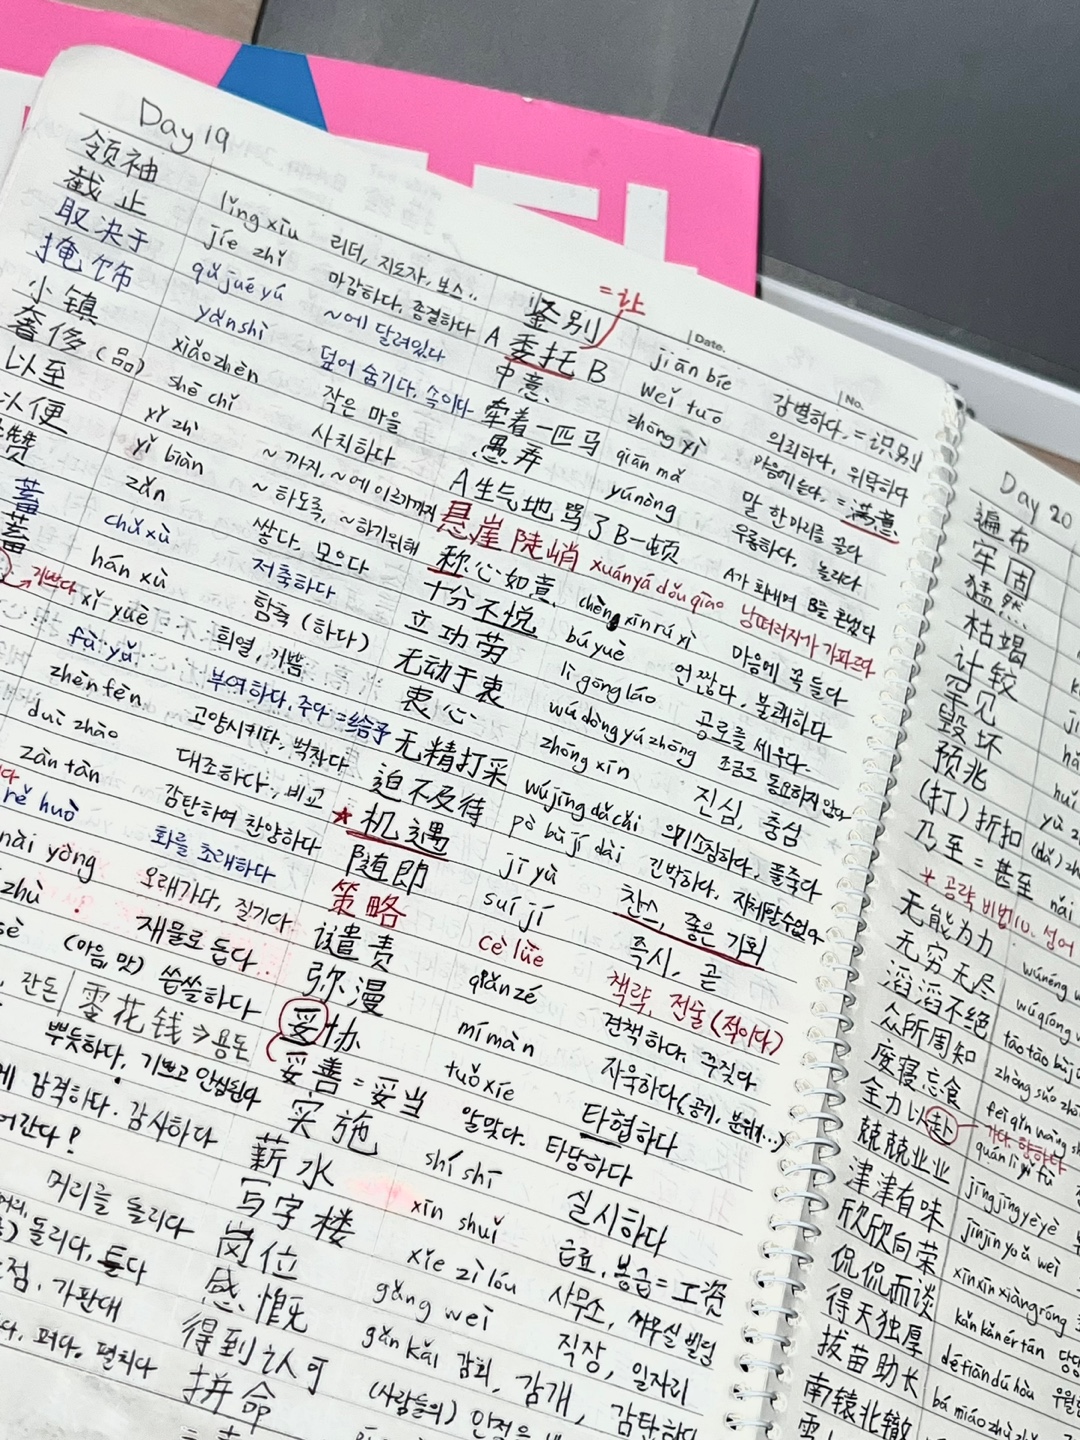 Day 19
领袖 lǐng xiù 리더, 지도자, 보스..
截止 jié zhǐ 마감하다, 종결하다
取决于 qǔ jué yú ~에 달려있다
掩饰 yǎn shì 덮어 숨기다, 속이다
小镇 xiǎo zhèn 작은 마을
奢侈(品) shē chǐ 사치하다
以至 yǐ zhì ~까지, ~에 이르기까지
以便 yǐ biàn ~하도록, ~하기위해
zǎn 쌓다, 모으다
蓄 chǔ xù 저축하다
蓄 hán xù 함축(하다)
기쁘다 xǐ yuè 희열, 기쁨
fù yǔ 부여하다, 주다 = 给予
zhèn fèn 고양시키다, 벅차다
duì zhào 대조하다, 비교
zàn tàn 감탄하여 찬양하다
rě huò 화를 초래하다
nài yòng 오래가다, 질기다
zhù 재물로 돕다
sè (마음, 맛) 씁쓸하다
, 잔돈 零花钱 → 용돈
뿌듯하다, 기쁘고 안심된다
게 감격하다. 감사하다
어간다?
머리를 돌리다
돌리다, 틀다
점, 가판대
다. 펴다. 펼치다
Date. No.
= 让
鉴别 jiān bié 감별하다, = 识别
A 委托 B wěi tuō 의뢰하다, 위탁하다
中意 zhòng yì 마음에 들다, = 满意
牵着一匹马 qiān mǎ 말 한마리를 끌다
愚弄 yú nòng 우롱하다, 놀리다
A生气地骂了B一顿 A가 화내며 B를 혼냈다
悬崖陡峭 xuán yá dǒu qiào 낭떠러지가 가파르다
称心如意 chèn xīn rú yì 마음에 꼭 들다
十分不悦 bú yuè 언짢다, 불쾌하다
立功劳 lì gōng láo 공로를 세우다
无动于衷 wú dòng yú zhōng 조금도 동요하지 않다
衷心 zhōng xīn 진심, 충심
无精打采 wú jīng dǎ cǎi 의기소침하다, 풀죽다
迫不及待 pò bù jí dài 긴박하다, 지체할수없다
★ 机遇 jī yù 찬스, 좋은 기회
随即 suí jí 즉시, 곧
策略 cè lüè 책략, 전술 (적이다)
谴责 qiǎn zé 견책하다. 꾸짖다
弥漫 mí màn 자욱하다(공기, 분위기...)
妥协 tuǒ xié 타협하다
妥善 = 妥当 알맞다. 타당하다
实施 shí shī 실시하다
薪水 xīn shuǐ 급료, 봉급 = 工资
写字楼 xiě zì lóu 사무소, 사무실 빌딩
岗位 gǎng wèi 직장, 일자리
感慨 gǎn kǎi 감회, 감개, 감탄하다
得到认可 (사람들의) 인정을
拼命
Day 20
遍布
牢固
猛然
枯竭
计较
罕见
毁坏
预兆
(打)折扣 (dǎ) zhé
乃至 = 甚至 nǎi
* 공략 비법 10. 성어
无能为力 wú néng
无穷无尽 wú qióng
滔滔不绝 tāo tāo bù j
众所周知 zhòng suǒ zhō
废寝忘食 fèi qǐn wàng sh
全力以赴 가다. 향하다 quán lì yǐ fù
兢兢业业 jīng jīng yè yè
津津有味 jīn jīn yǒu wèi
欣欣向荣 xīn xīn xiàng róng
侃侃而谈 kǎn kǎn ér tán
得天独厚 dé tiān dú hòu
拔苗助长 bá miáo zhù zh
南辕北辙